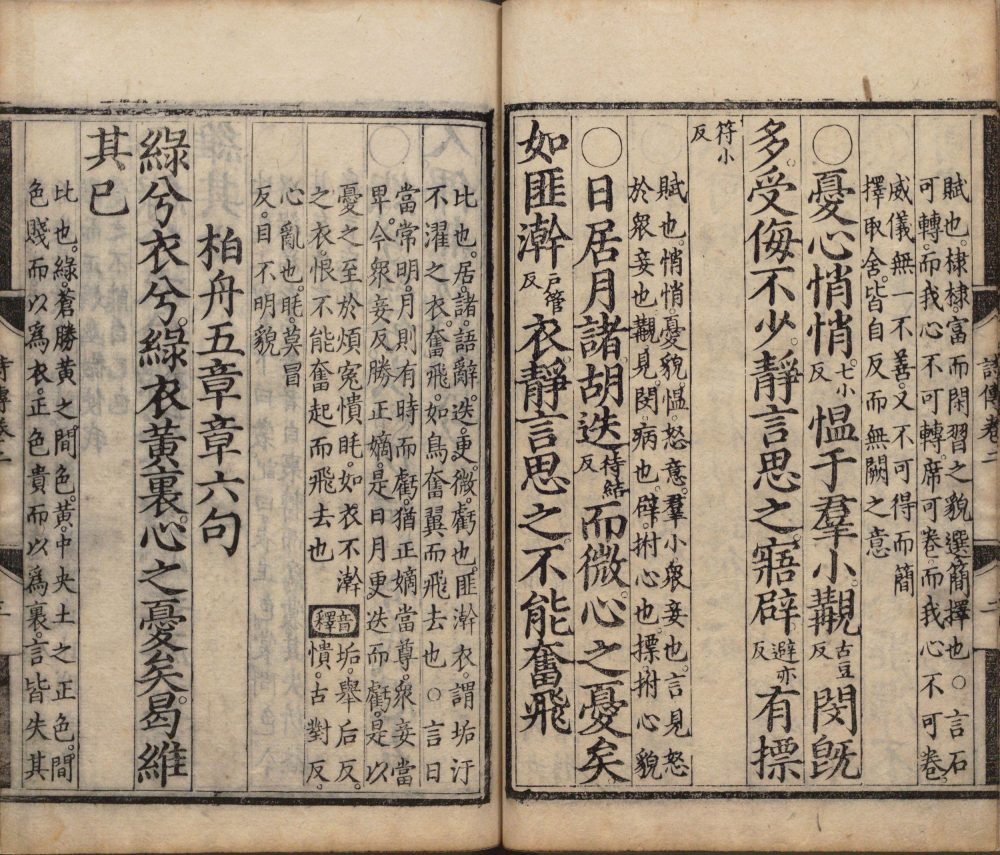 詩傳卷二
賦也。棣棣。富而閑習之貌。選。簡擇也。○言石
可轉。而我心不可轉。席可卷。而我心不可卷。
威儀無一不善。又不可得而簡
擇取舍。皆自反而無闕之意
○憂心悄悄。七小反慍于羣小。覯古豆反閔旣
多。受侮不少。靜言思之。寤辟避亦反有摽
符小反
賦也。悄悄。憂貌。慍。怒意。羣小。衆妾也。言見怒
於衆妾也。覯。見。閔。病也。辟。拊心也。摽。拊心貌
○日居月諸。胡迭待結反而微。心之憂矣。
如匪澣戶管反衣。靜言思之。不能奮飛
比也。居。諸。語辭。迭。更。微。虧也。匪澣衣。謂垢汙
不濯之衣。奮飛。如鳥奮翼而飛去也○言日
當常明。月則有時而虧。猶正嫡當尊。衆妾當
卑。今衆妾反勝正嫡。是日月更迭而虧。是以
憂之至於煩寃憒眊。如衣不澣
之衣。恨不能奮起而飛去也
音釋垢。舉后反。
憒。古對反。
心亂也。眊。莫冒
反。目不明貌
柏舟五章章六句
綠兮衣兮。綠衣黃裏。心之憂矣。曷維
其已
比也。綠。蒼勝黃之間色。黃。中央土之正色。間
色賤而以爲衣。正色貴而以爲裏。言皆失其